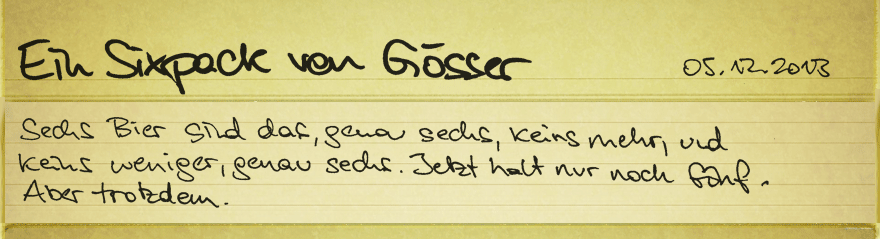 Ein Sixpack von Gösser
05.12.2013
Sechs Bier sind das, genau sechs, keins mehr, und
keins weniger, genau sechs. Jetzt halt nur noch fünf.
Aber trotzdem.